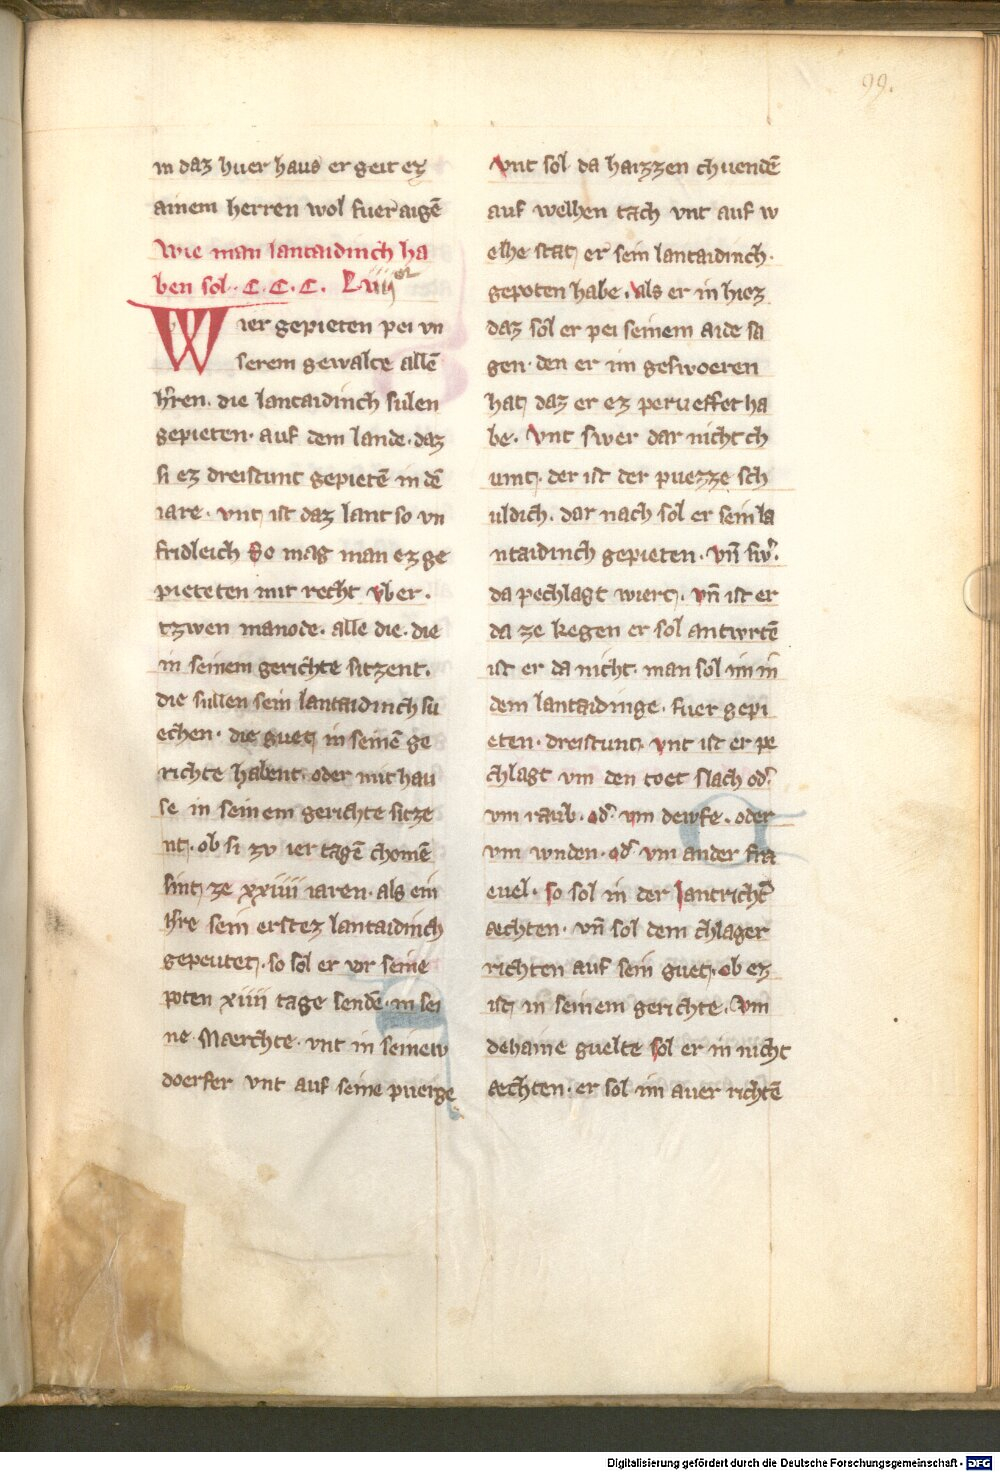 99.
in daz huer haus er geit ez
ainem herren wol fuer aigē
Wie man lantaidinch ha
ben sol. C. C. C. Lviiij
Wier gepieten pei vn
serem gewalte allē
h̄ren. die lantaidinch sulen
gepieten. auf dem lande. daz
si ez dreistunt gepietē in dē
iare. vnt ist daz lant so vn
fridleich So mag man ez ge
pieteten mit recht vber.
tzwen manode. alle die. die
in seinem gerichte sitzent.
die sullen sein lantaidinch su
echen. die guet in seinē ge
richte habent. oder mit hau
se in seinem gerichte sitze
nt. ob si zv ier tagē chomē
sint ze xxiiii iaren. als ein
h̄re sein erstez lantaidinch
gepeutet. so sol er vor seine
poten xiiii tage sendē in sei
ne Maerchte. vnt in seinew
doerfer vnt auf seine puerge
Vnt sol da haizzen chuendē
auf welhen tach vnt auf w
elhe stat er sein lantaidinch.
gepoten habe. Als er in hiez
daz sol er pei seinem aide sa
gen. den er im geswoeren
hat daz er ez perueffet ha
be. Vnt swer dar nicht ch
umt. der ist der puezze sch
uldich. dar nach sol er sein la
ntaidinch gepieten. Vn̄ sw̾.
da pechlagt wiert. vn̄ ist er
da ze kegen er sol antwrtē
ist er da nicht. man sol im in
dem lantaidinge. fuer gepi
eten. dreistunt. vnt ist er pe
chlagt vm den toet slach od̾
vm raub. od̾ vm dewfe. oder
vm wnden. od̾ vm ander fra
euel. so sol in der lantrichtē
aechten. vn̄ sol dem chlager
richten auf sein guet. ob ez
ist in seinem gerichte. Vm
dehaine guelte sol er in nicht
aechten. er sol im auer richtē
Digitalisierung gefördert durch die Deutsche Forschungsgemeinschaft - DFG